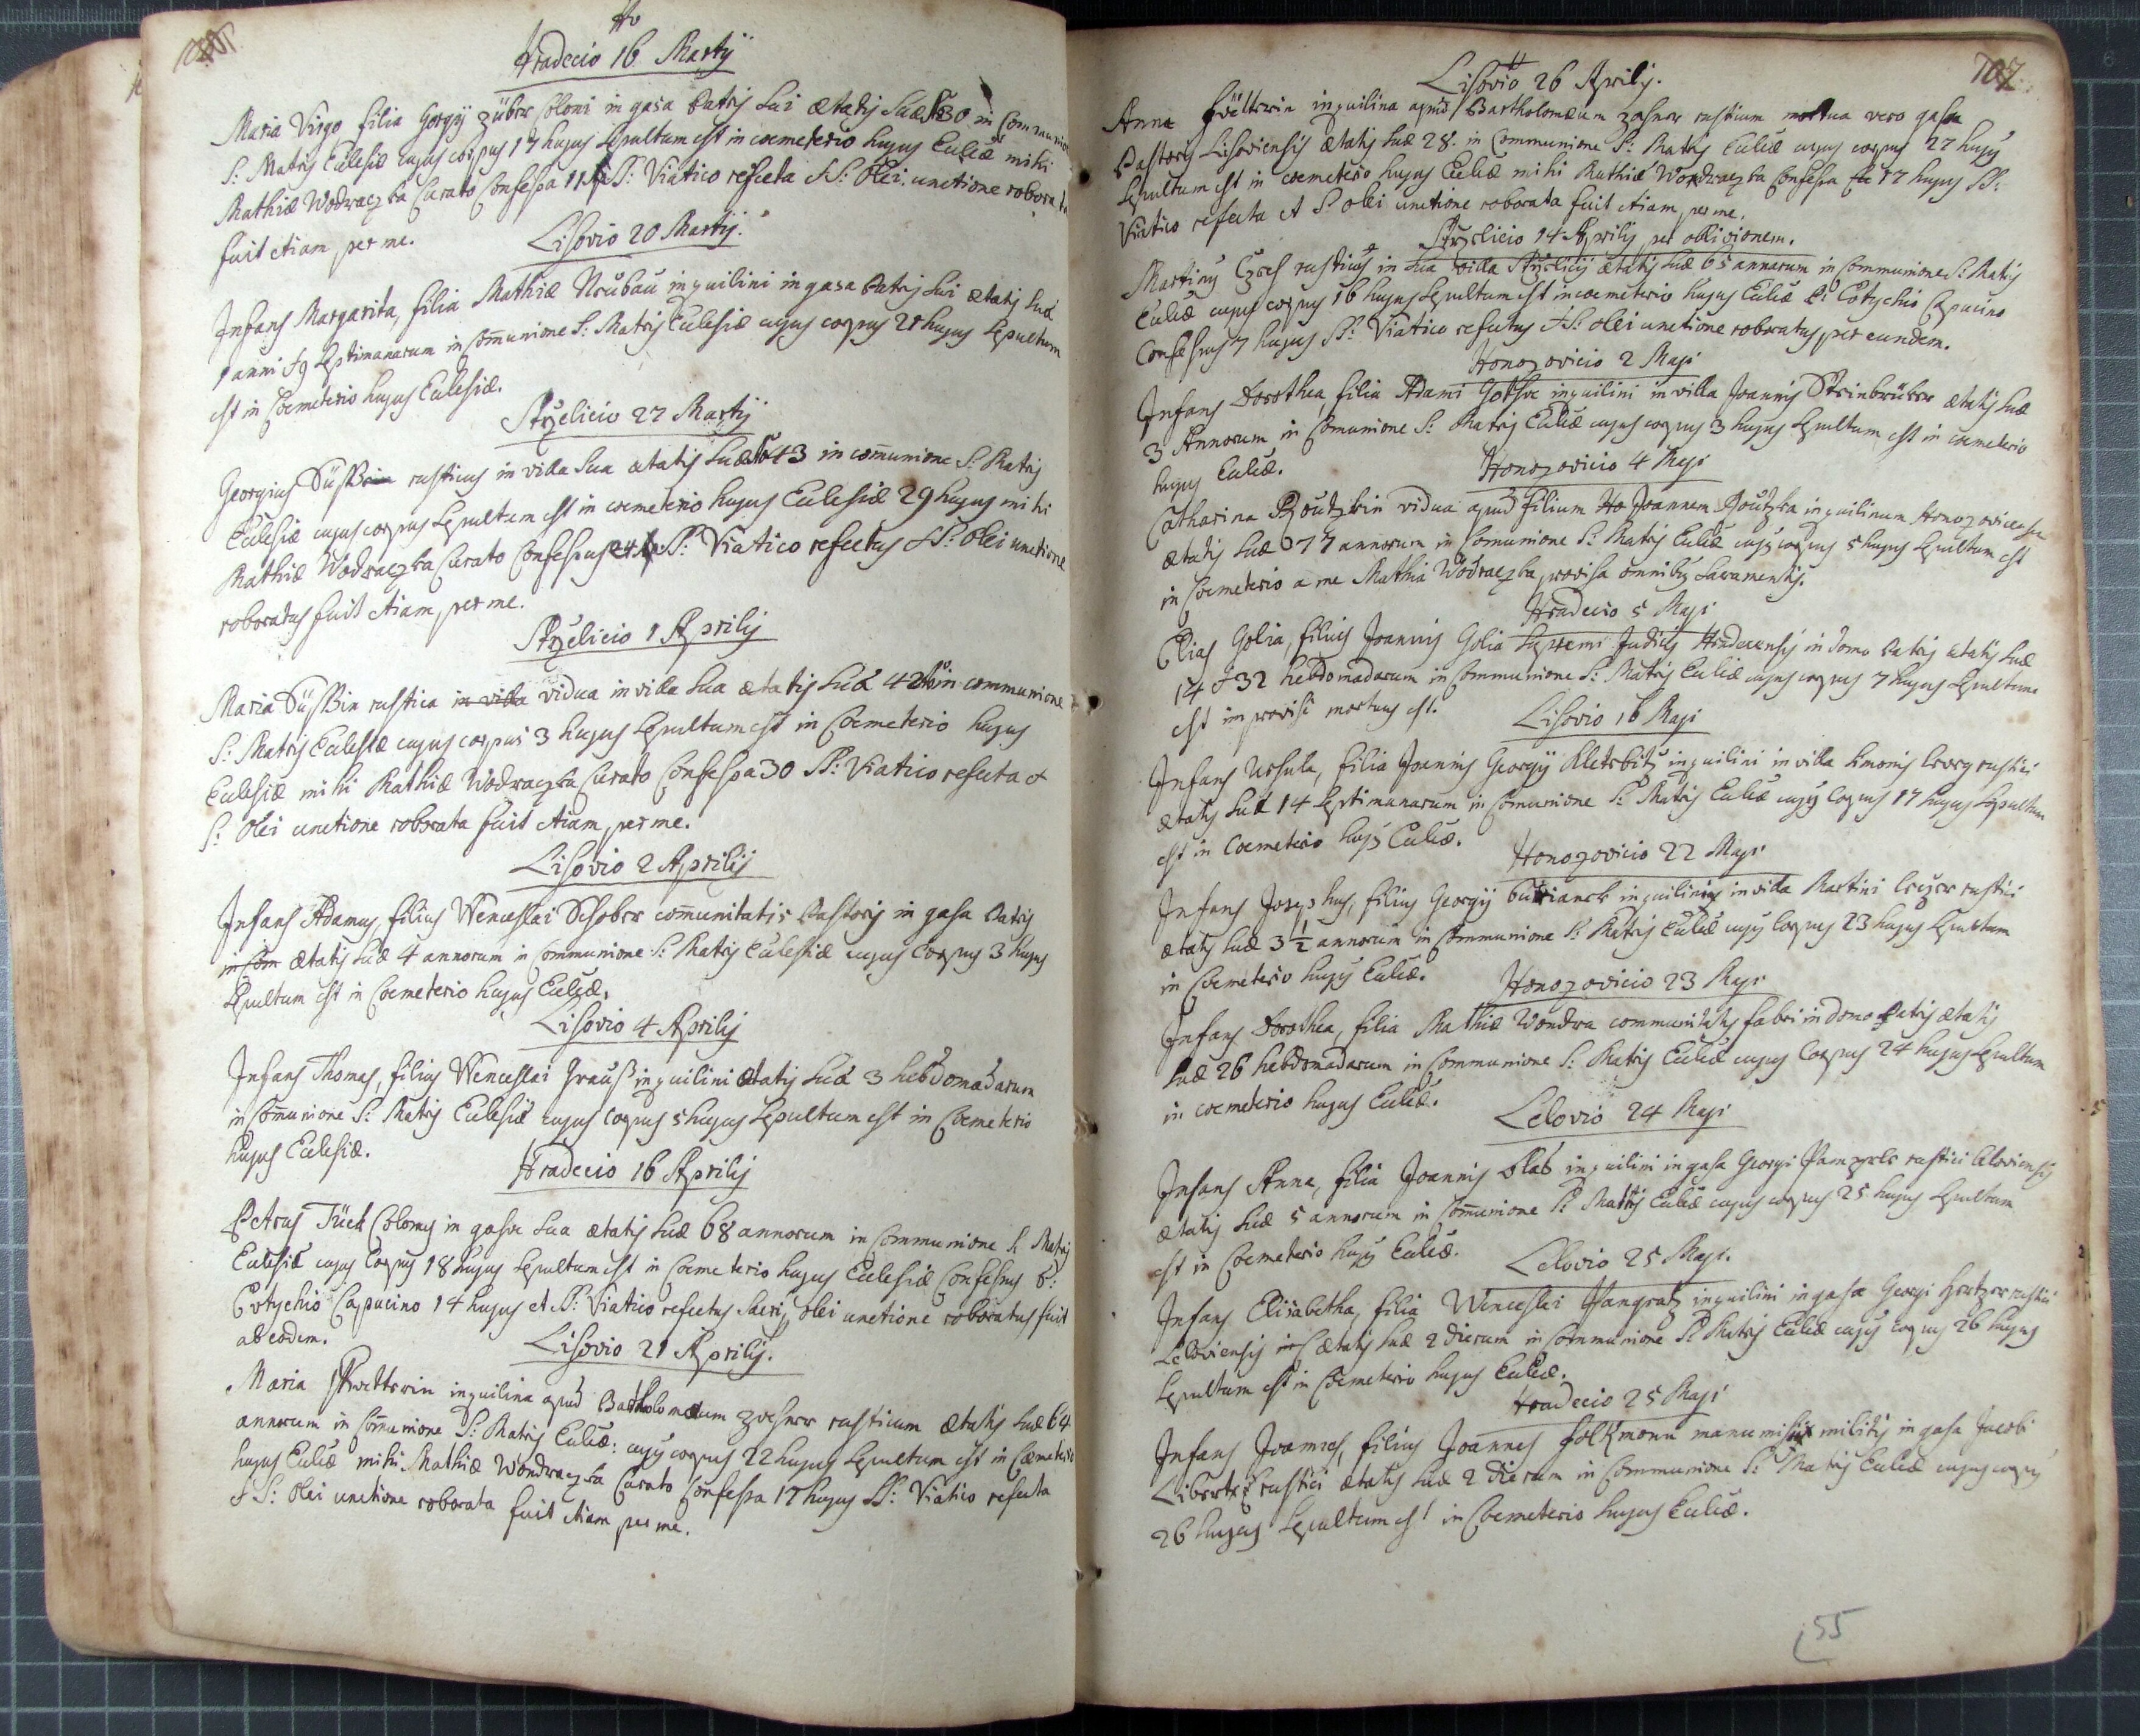 Hradecio 16 Martij
Maria Virgo filia Georgij Züber Coloni in gasa Patris sui ætatis suæ 30 in Communione
S: Matris Ecclesiæ cujus corpus 17 hujus sepultum est in coemeterio hujus Eccliæ mihi
Mathiæ Wodraczka Curato Confessa 11 SS: Viatico refecta & S: Olei unctione roborata
fuit etiam per me.
Lisovio 20 Martij.
Infans Margarita, filia Mathiæ Neubau inquilini in gasa Patris sui ætatis suæ
1 anni & 9 septimanarum in Comunione S: Matris Ecclesiæ cujus corpus 21 hujus sepultum
est in Coemeterio hujus Ecclesiæ.
Strzelicio 27 Martij
Georgius rusticus in villa sua ætatis suæ 43 in comunione S: Matris
Ecclesiæ cujus corpus sepultum est in coemeterio hujus Ecclesiæ 29 hujus mihi
Mathiæ Wodraczka Curato Confessus 24 SS: Viatico refectus & S: Olei unctione
roboratus fuit etiam per me.
Strzelicio 1 Aprilis
Maria Süssin rustica in villa vidua in villa sua ætatis suæ 42 in communione
S: Matris Ecclesiæ cujus corpus 3 hujus sepultum est in Coemeterio hujus
Ecclesiæ mihi Mathiæ Wodraczka Curato Confessa 30 SS: Viatico refecta &
S: Olei unctione roborata fuit etiam per me.
Lisovio 2 Aprilis
Infans Adamus, filius Wenceslai Schober comunitatis Pastoris in gasa Patris
in Com ætatis suæ 4 annorum in Communione S: Matris Ecclesiæ cujus Corpus 3 hujus
sepultum est in Coemeterio hujus Eccliæ.
Lisovio 4 Aprilis
Infans Thomas, filius Wenceslai Grauß inquilini ætatis suæ 3 hebdomadarum
in Comunione S: Matris Ecclesiæ cujus Corpus 5 hujus sepultum est in Coemeterio
hujus Ecclesiæ.
Hradecio 16 Aprilis
Petrus Tück Colonus in gasa sua ætatis suæ 68 annorum in Communione S: Matris
Ecclesiæ cujus Corpus 18 hujus sepultum est in Coemeterio hujus Ecclesiæ Confessus P:
Eotychio Capucino 14 hujus et SS: Viatico refectus Sacri Olei unctione roboratus fuit
ab eodem.
Lisovio 21 Aprilis.
Maria inquilina apud Bartholomæum Zosner rusticum ætatis suæ 64
annorum in Comunione S: Matris Eccliæ: cujus corpus 22 hujus sepultum est in Cæmeterio
hujus Eccliæ mihi Mathiæ Wondraczka Curato Confessa 17 hujus SS: Viatico refecta
& S: Olei unctione roborata fuit etiam per me.
107.
Lisovio 26 Aprilis.
Anna inquilina apud Bartholomæum Zosner rusticum mortua vero gasa
Pastoris Lisoviensis ætatis suæ 28. in Communione S: Matris Eccliæ cujus corpus 27 hujus
sepultum est in coemeterio hujus Eccliæ mihi Mathiæ Wordraczka Confessa 17 hujus SS:
Viatico refecta et S: olei unctione roborata fuit etiam per me.
Strzelicio 14 Aprilis per oblivionem.
Martinus rusticus in sua villa ætatis suæ 65 annorum in Communione S: Matris
Eccliæ cujus corpus 16 hujus sepultum est in coemeterio hujus Eccliæ P: Eotychio Capucino
Confessus 7 hujus SS: Viatico refectus & S: olei unctione roboratus per eundem.
Honozovicio 2 Maji
Infans Dorothea, filia Adami inquilini in villa Joannis Steinbrüker ætatis suæ
3 Annorum in Comunione S: Matris Eccliæ cujus corpus 3 hujus sepultum est in coemeterio
hujus Eccliæ.
Honozovicio 4 Maji
Catharina vidua apud filium Ho Joannem inquilinum Honozovicensem
ætatis suæ 77 annorum in Comunione S: Matris Eccliæ cujus corpus 5 hujus sepultum est
in Coemeterio a me Mathia Wodraczka provisa omnibus sacramentis.
Hradecio 5 Maji
Elias Golia, filius Joannis Golia supremi Judicis Hradecensis in domo Patris ætatis suæ
14 & 32 hebdomadarum in Communione S: Matris Eccliæ cujus corpus 7 hujus sepultum
est improvisè mortuus est.
Lisovio 16 Maji
Infans Ursula, filia Joannis Georgij inquilini in villa Simonis rustici
ætatis suæ 14 septimanarum in Comunione S: Matris Eccliæ cujus Corpus 17 hujus sepultum
est in Coemeterio hujus Eccliæ.
Honozovicio 22 Maji
Infans Josephus, filius Georgij inquilini in villa Martini rustici
ætatis suæ 3 1/2 annorum in Communione S: Matris Eccliæ cujus Corpus 23 hujus sepultum
in Coemeterio hujus Eccliæ.
Honozovicio 23 Maji
Infans Dorothea, filia Mathiæ Wondra communitatis fabri in domo Patris ætatis
suæ 26 hebdomadarum in Communione S: Matris Eccliæ cujus Corpus 24 hujus sepultum
in coemeterio hujus Eccliæ.
Lelovio 24 Maji
Infans Anna, filia Joannis Blab inquilini in gasa Georgi rustici Leloviensis
ætatis suæ 5 annorum in Comunione S: Matris Eccliæ cujus corpus 25 hujus sepultum
est in Coemeterio hujus Eccliæ.
Lelovio 25 Maji.
Infans Elisabetha, filia Wenceslai Pangratz inquilini in gasa Georgi Hertzer rustici
Leloviensis ætatis suæ 2 dierum in Communione S: Matris Eccliæ cujus corpus 26 hujus
sepultum est in Coemeterio hujus Eccliæ.
Hradecio 25 Maji
Infans Joannes, filius Joannis Foltzmonn manumissi militis in gasa Jacobi
rustici ætatis suæ 2 dierum in Communione S: Matris Eccliæ cujus corpus
26 hujus sepultum est in Coemeterio hujus Eccliæ.
55